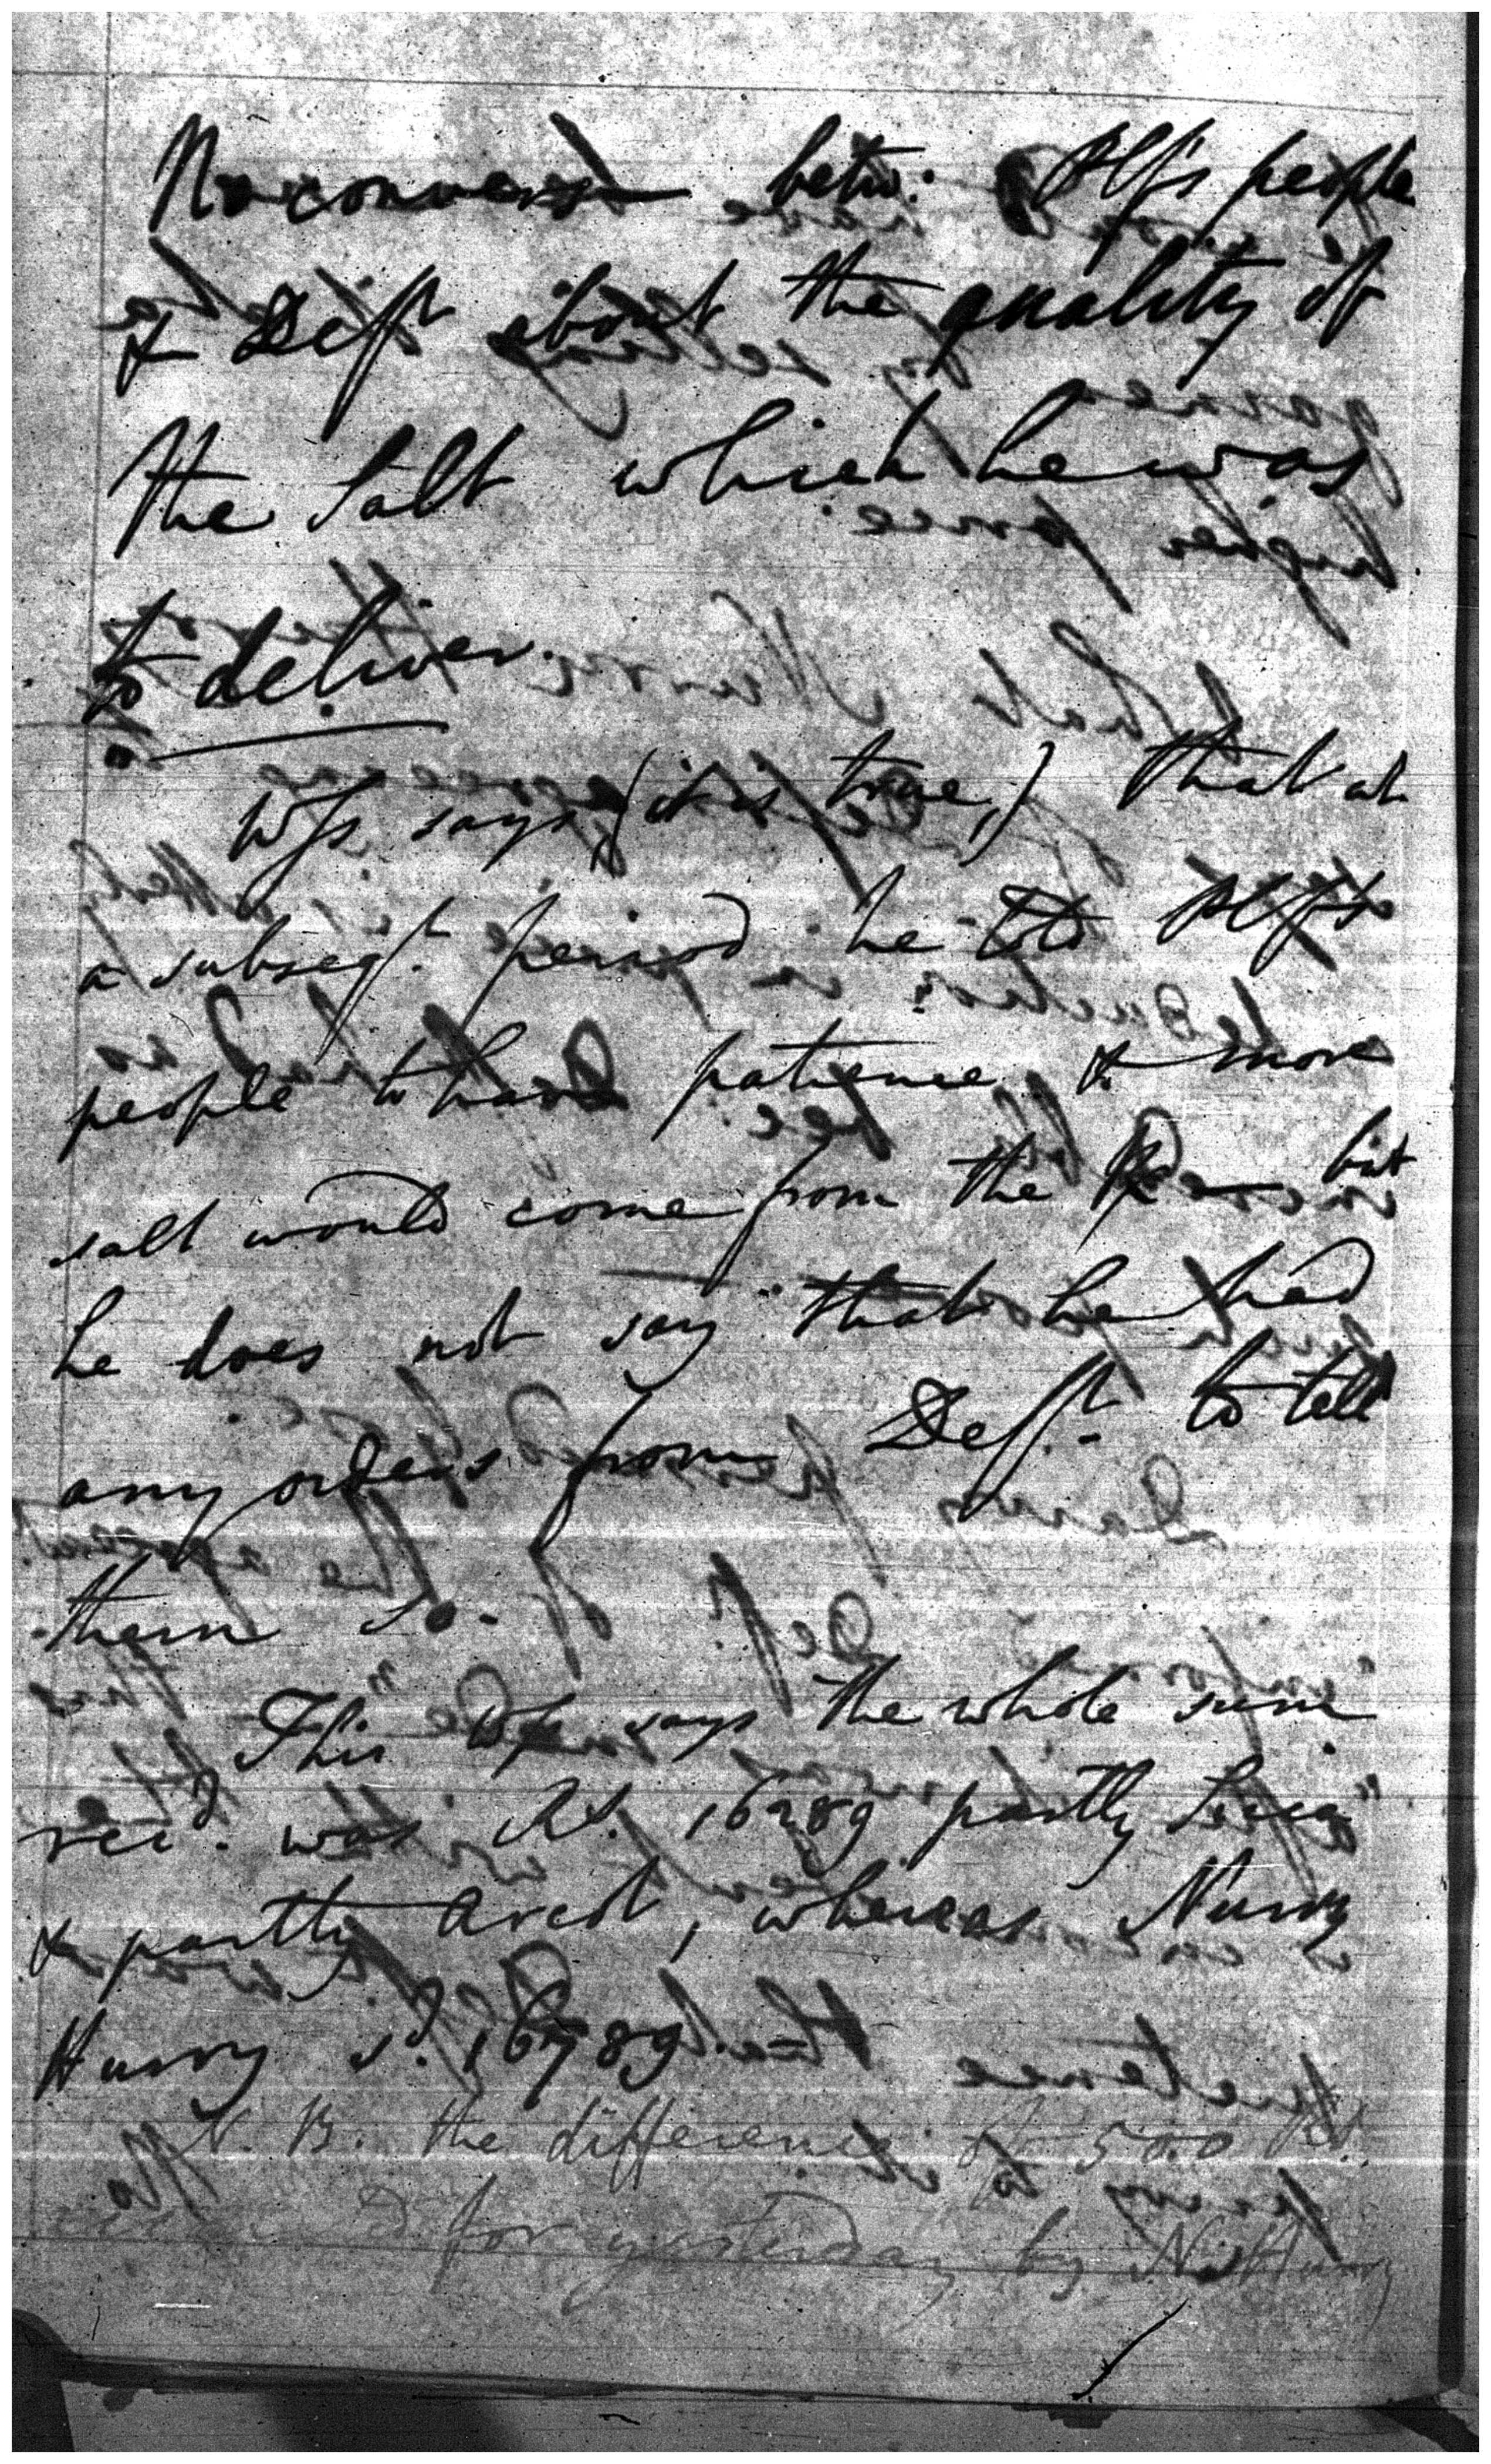 No convers.n betw: Plf's people
& Deft about the quality of
the Salt which he was
to deliver.
Wss says (it is true,) that at
a subseqt. period he told Plf's
people to have patience & more
salt would come from the but
he does not say that he had
any orders from Deft. to tell
them so.
This Wss says the whole sum
recd. was Rs. 16289 partly Sicca
& partly Arcot, whereas Nursy
Hurry sd. 16789
N.B. the difference of 500 Rs.
for yesterday by N. Hurry